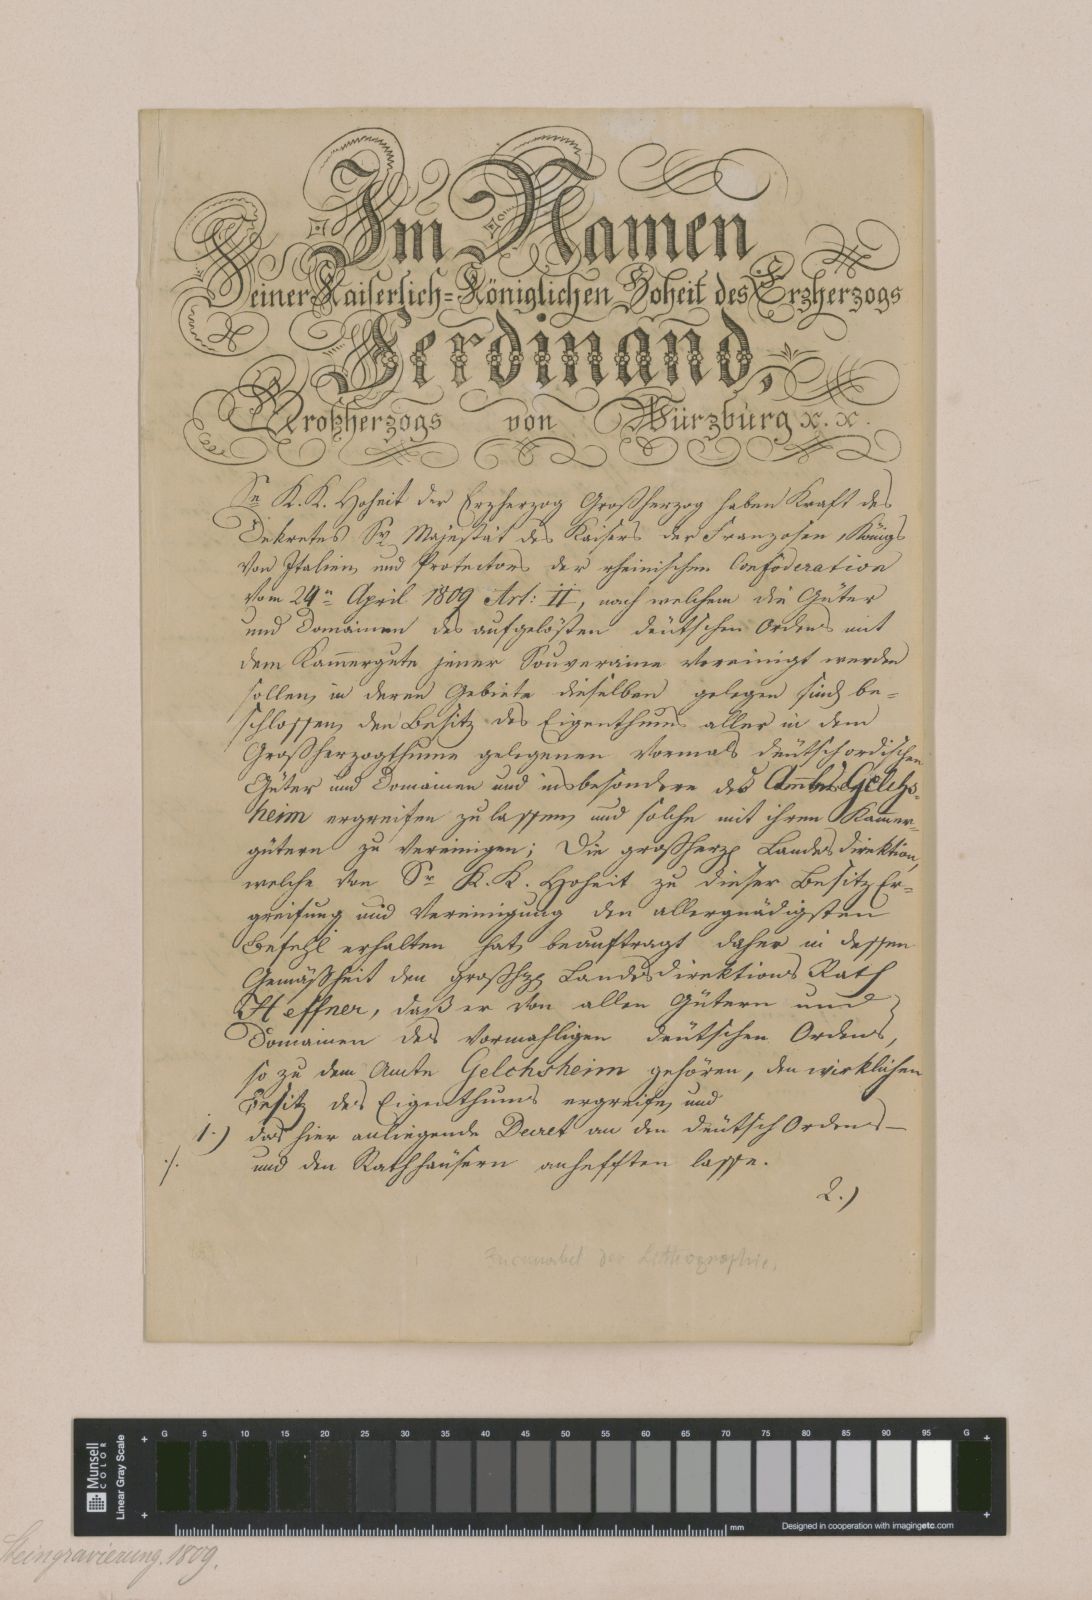 Im Namen
Seiner Kaiserlich=Königlichen Hoheit des Erzherzogs
Ferdinand,
Großherzogs von Würzburg x. x.
Se K. K. Hoheit der Erzherzog Großherzog haben Kraft des
Dekretes Sr Majestät des Kaisers der Franzosen, Königs
von Italien, und Protectors der rheinischen Conföderation
vom 24n April 1809 Art: II, nach welchem die Güter
und Domainen des aufgelößten deütschen Ordens mit
dem Kam̄ergute jener Souveraine vereinigt werden
sollen, in deren Gebiete dieselben gelegen sind, be=
schlossen, den Besitz des Eigenthums aller in dem
Großherzogthume gelegenen vormals deütschordischen
Güter und Domainen und insbesondere des Amtes Gelchs=
heim ergreifen zu lassen, und solche mit ihren Kam̄er=
gütern zu vereinigen; Die großherzg Landesdirektion,
welche von Sr K. K. Hoheit zu dieser Besitz Er=
greifung und Vereinigung den allergnädigsten
Befehl erhalten hat, beauftragt daher in dessen
Gemäßheit den großhzg Landesdirektions Rath
Heffner, daß er von allen Gütern und
Domainen des vormahligen deütschen Ordens,
so zu dem Amte Gelchsheim gehören, den wirklichen
Besitz des Eigenthums ergreife, und
1.) das hier anliegende Decret an den deütsch Ordens-
./. und den Rathhäusern anhefften lasse.
2.)
der Lithographie.
Munsell
COLOR
Linear Gray Scale
G 5 10 15 20 25 30 35 40 45 50 55 60 65 70 75 80 85 90 95 G
mm
Designed in cooperation with imagingetc.com
Steingravierung. 1809.